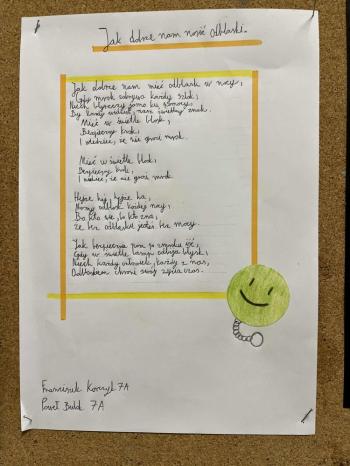 Jak dobrze nam nosić odblaski.
Jak dobrze nam mieć odblaski w nocy,
Gdy mrok zakrywa każdy szlak,
Niech błyszczy jasno ku pomocy,
By każdy widział nam świetlny znak.
Mieć w świetle blask,
Bezpieczny krok,
I wiedzieć, że nie grozi mrok.
Mieć w świetle blask,
Bezpieczny krok,
I wiedzieć, że nie grozi mrok.
Hejże hej, hejże ha,
Nośmy odblask każdej nocy,
Bo kto wie, bo kto zna,
Że bez odblasków jesteś bez mocy.
Jak bezpiecznie po zmroku iść,
Gdy w świetle lamp odbija błysk,
Niech każdy człowiek, każdy z nas,
Odblaskiem chroni swój życia czas.
Franciszek 7A
Paweł 7A